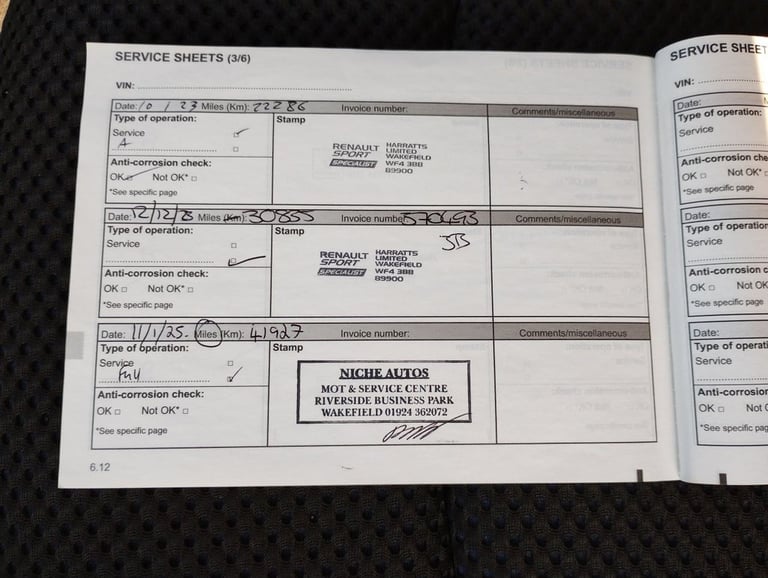 SERVICE SHEETS (3/6)
VIN:
Date: 10 / 23 Miles (Km): 22286 Invoice number: Comments/miscellaneous
Type of operation: Stamp
Service
A
RENAULT SPORT SPECIALIST
HARRATTS LIMITED WAKEFIELD WF4 3BB 89900
Anti-corrosion check:
OK Not OK*
*See specific page
Date: 12/12/23 Miles (Km): 30855 Invoice number: 570493 Comments/miscellaneous
Type of operation: Stamp
Service
RENAULT SPORT SPECIALIST
HARRATTS LIMITED WAKEFIELD WF4 3BB 89900
Anti-corrosion check:
OK Not OK*
*See specific page
Date: 11/1/25. Miles (Km): 41927 Invoice number: Comments/miscellaneous
Type of operation: Stamp
Service
Full
NICHE AUTOS
MOT & SERVICE CENTRE
RIVERSIDE BUSINESS PARK
WAKEFIELD 01924 362072
Anti-corrosion check:
OK Not OK*
*See specific page
6.12
SERVICE SHEET
VIN:
Date:
Type of operation:
Service
Anti-corrosion che
OK Not OK*
*See specific page
Date:
Type of operation
Service
Anti-corrosion c
OK Not OK
*See specific page
Date:
Type of operati
Service
Anti-corrosion
OK Not O
*See specific pag